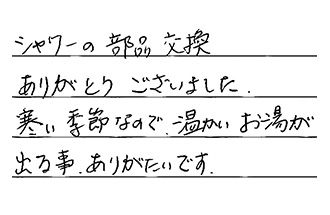 シャワーの部品交換
ありがとうございました.
寒い季節なので.温かいお湯が
出る事.ありがたいです.